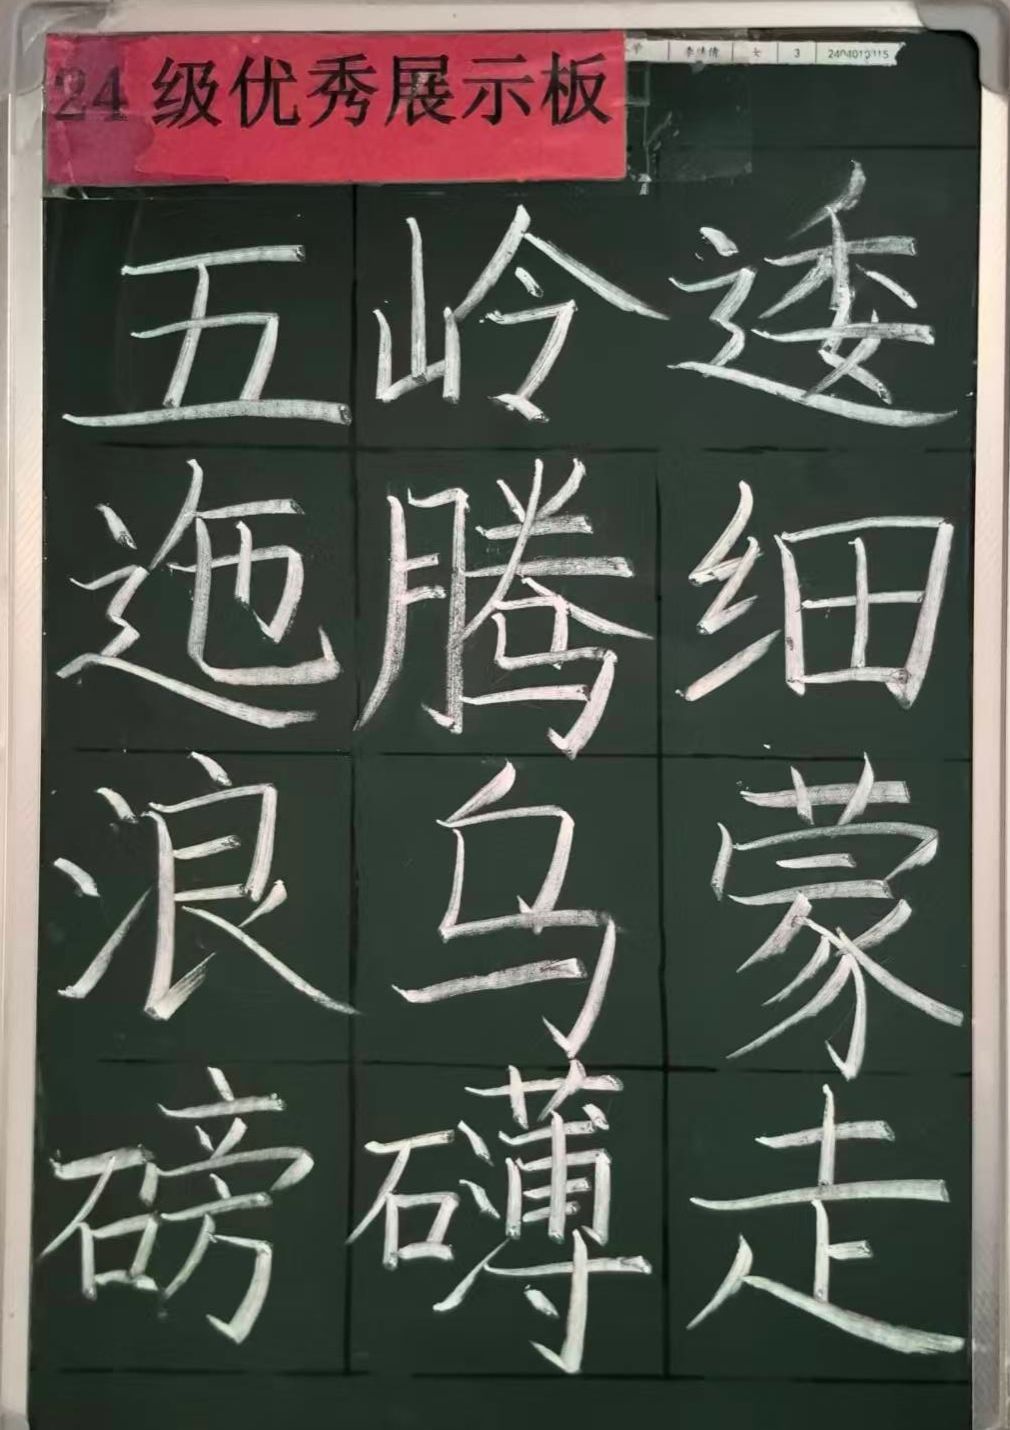 24级优秀展示板
学 李倩倩 七 3 2404010315
五岭逶
迤腾细
浪乌蒙
磅礴走